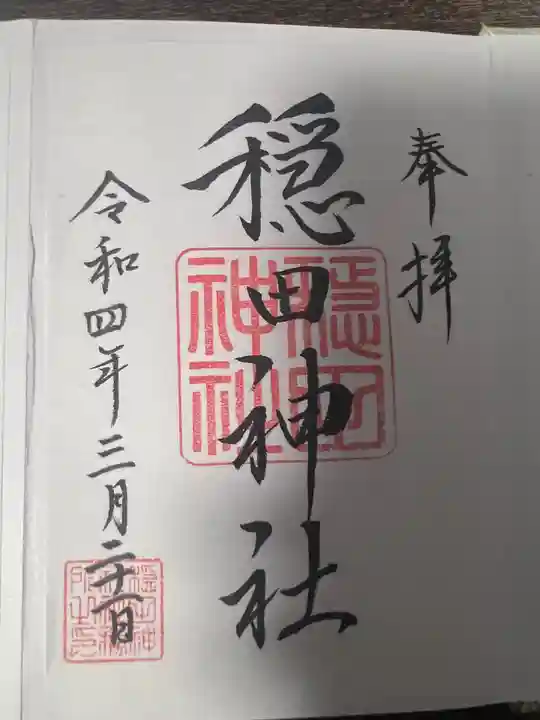 奉拝
穏田神社
穏田神社
令和四年三月二十一日